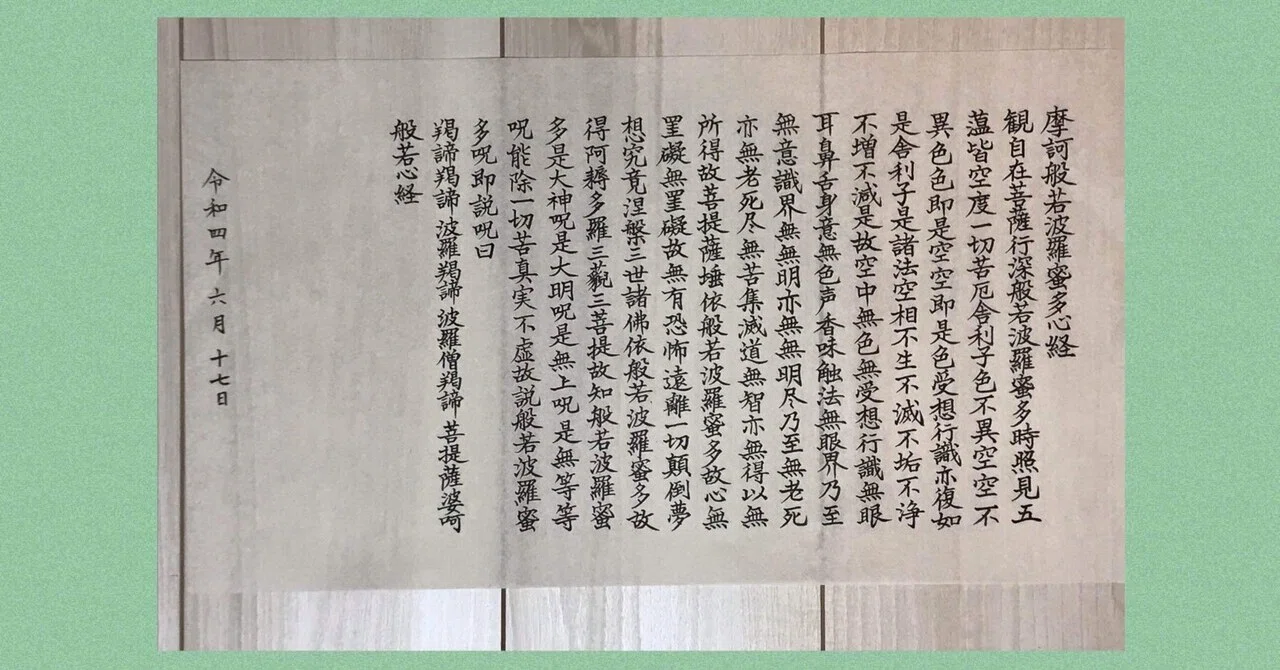 摩訶般若波羅蜜多心経
観自在菩薩行深般若波羅蜜多時照見五
薀皆空度一切苦厄舎利子色不異空空不
異色色即是空空即是色受想行識亦復如
是舎利子是諸法空相不生不滅不垢不浄
不増不減是故空中無色無受想行識無眼
耳鼻舌身意無色声香味触法無眼界乃至
無意識界無無明亦無無明尽乃至無老死
亦無老死尽無苦集滅道無智亦無得以無
所得故菩提薩埵依般若波羅蜜多故心無
罣礙無罣礙故無有恐怖遠離一切顛倒夢
想究竟涅槃三世諸佛依般若波羅蜜多故
得阿耨多羅三藐三菩提故知般若波羅蜜
多是大神呪是大明呪是無上呪是無等等
呪能除一切苦真実不虚故説般若波羅蜜
多呪即説呪曰
羯諦羯諦 波羅羯諦 波羅僧羯諦 菩提薩婆呵
般若心経
令和四年 六月 十七日